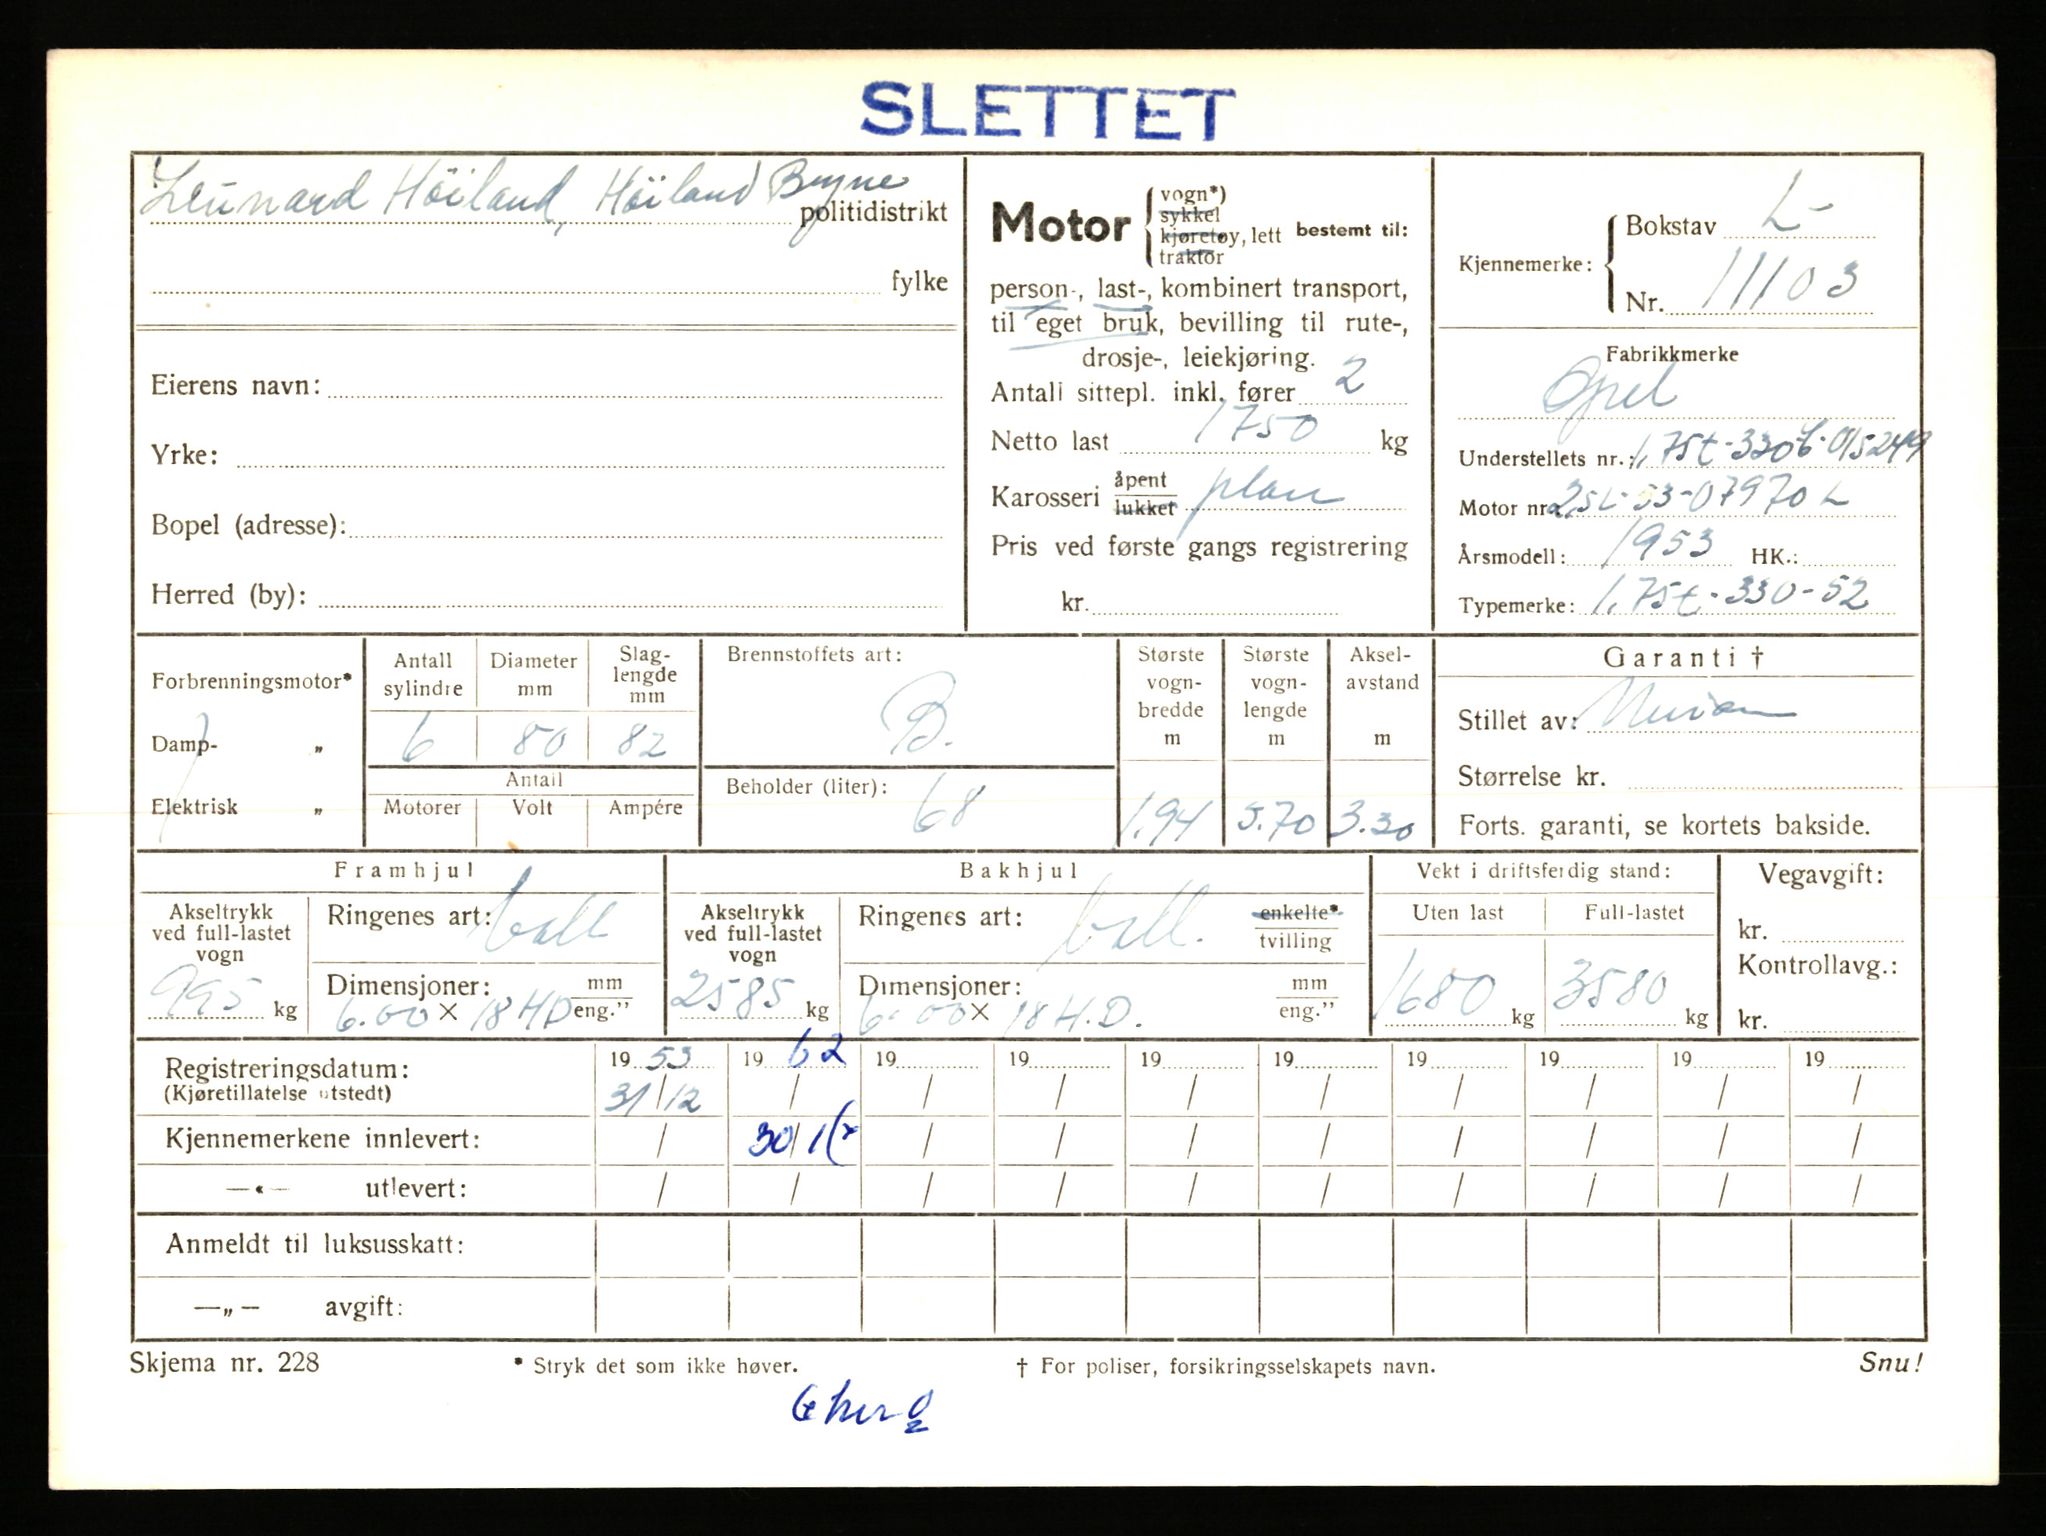 SLETTET
Leunard Höiland, Höiland Bryne
politidistrikt
fylke
Eierens navn:
Yrke:
Bopel (adresse):
Herred (by):
Motor vogn*)
sykkel
kjøretøy, lett
traktor
bestemt til:
person-, last-, kombinert transport,
til eget bruk, bevilling til rute-,
drosje-, leiekjøring.
Antall sittepl. inkl. fører 2
Netto last 1750 kg
Karosseri åpent lukket plan
Pris ved første gangs registrering
kr.
Kjennemerke: Bokstav L-
Nr. 11103
Fabrikkmerke
Opel
Understellets nr.: 1,75t-3306-015249
Motor nr. 2,5L-53-07970L
Årsmodell: 1953 HK.:
Typemerke: 1,75t-330-52
Forbrenningsmotor*
Damp- „
Elektrisk „
Antall sylindre Diameter mm Slaglengde mm
6 80 82
Antall
Motorer Volt Ampére
Brennstoffets art:
B.
Beholder (liter):
68
Største vognbredde m
1.94
Største vognlengde m
5.70
Akselavstand m
3.30
Garanti †
Stillet av:
Størrelse kr.
Forts. garanti, se kortets bakside.
Framhjul
Akseltrykk ved full-lastet vogn
995 kg
Ringenes art: ball
Dimensjoner: mm eng."
6.00 × 18 HD
Bakhjul
Akseltrykk ved full-lastet vogn
2585 kg
Ringenes art: ball. enkelte* tvilling
Dimensjoner: mm eng."
6.00 × 18 H.D.
Vekt i driftsferdig stand:
Uten last Full-lastet
1680 kg 3580 kg
Vegavgift:
kr.
Kontrollavg.:
kr.
Registreringsdatum: 19 53 19 62 19 19 19 19 19 19 19 19
(Kjøretillatelse utstedt) 31/12 / / / / / / / / /
Kjennemerkene innlevert: / 30/1 / / / / / / / /
—«— utlevert: / / / / / / / / / /
Anmeldt til luksusskatt:
—„— avgift:
Skjema nr. 228 * Stryk det som ikke høver. † For poliser, forsikringsselskapets navn. Snu!